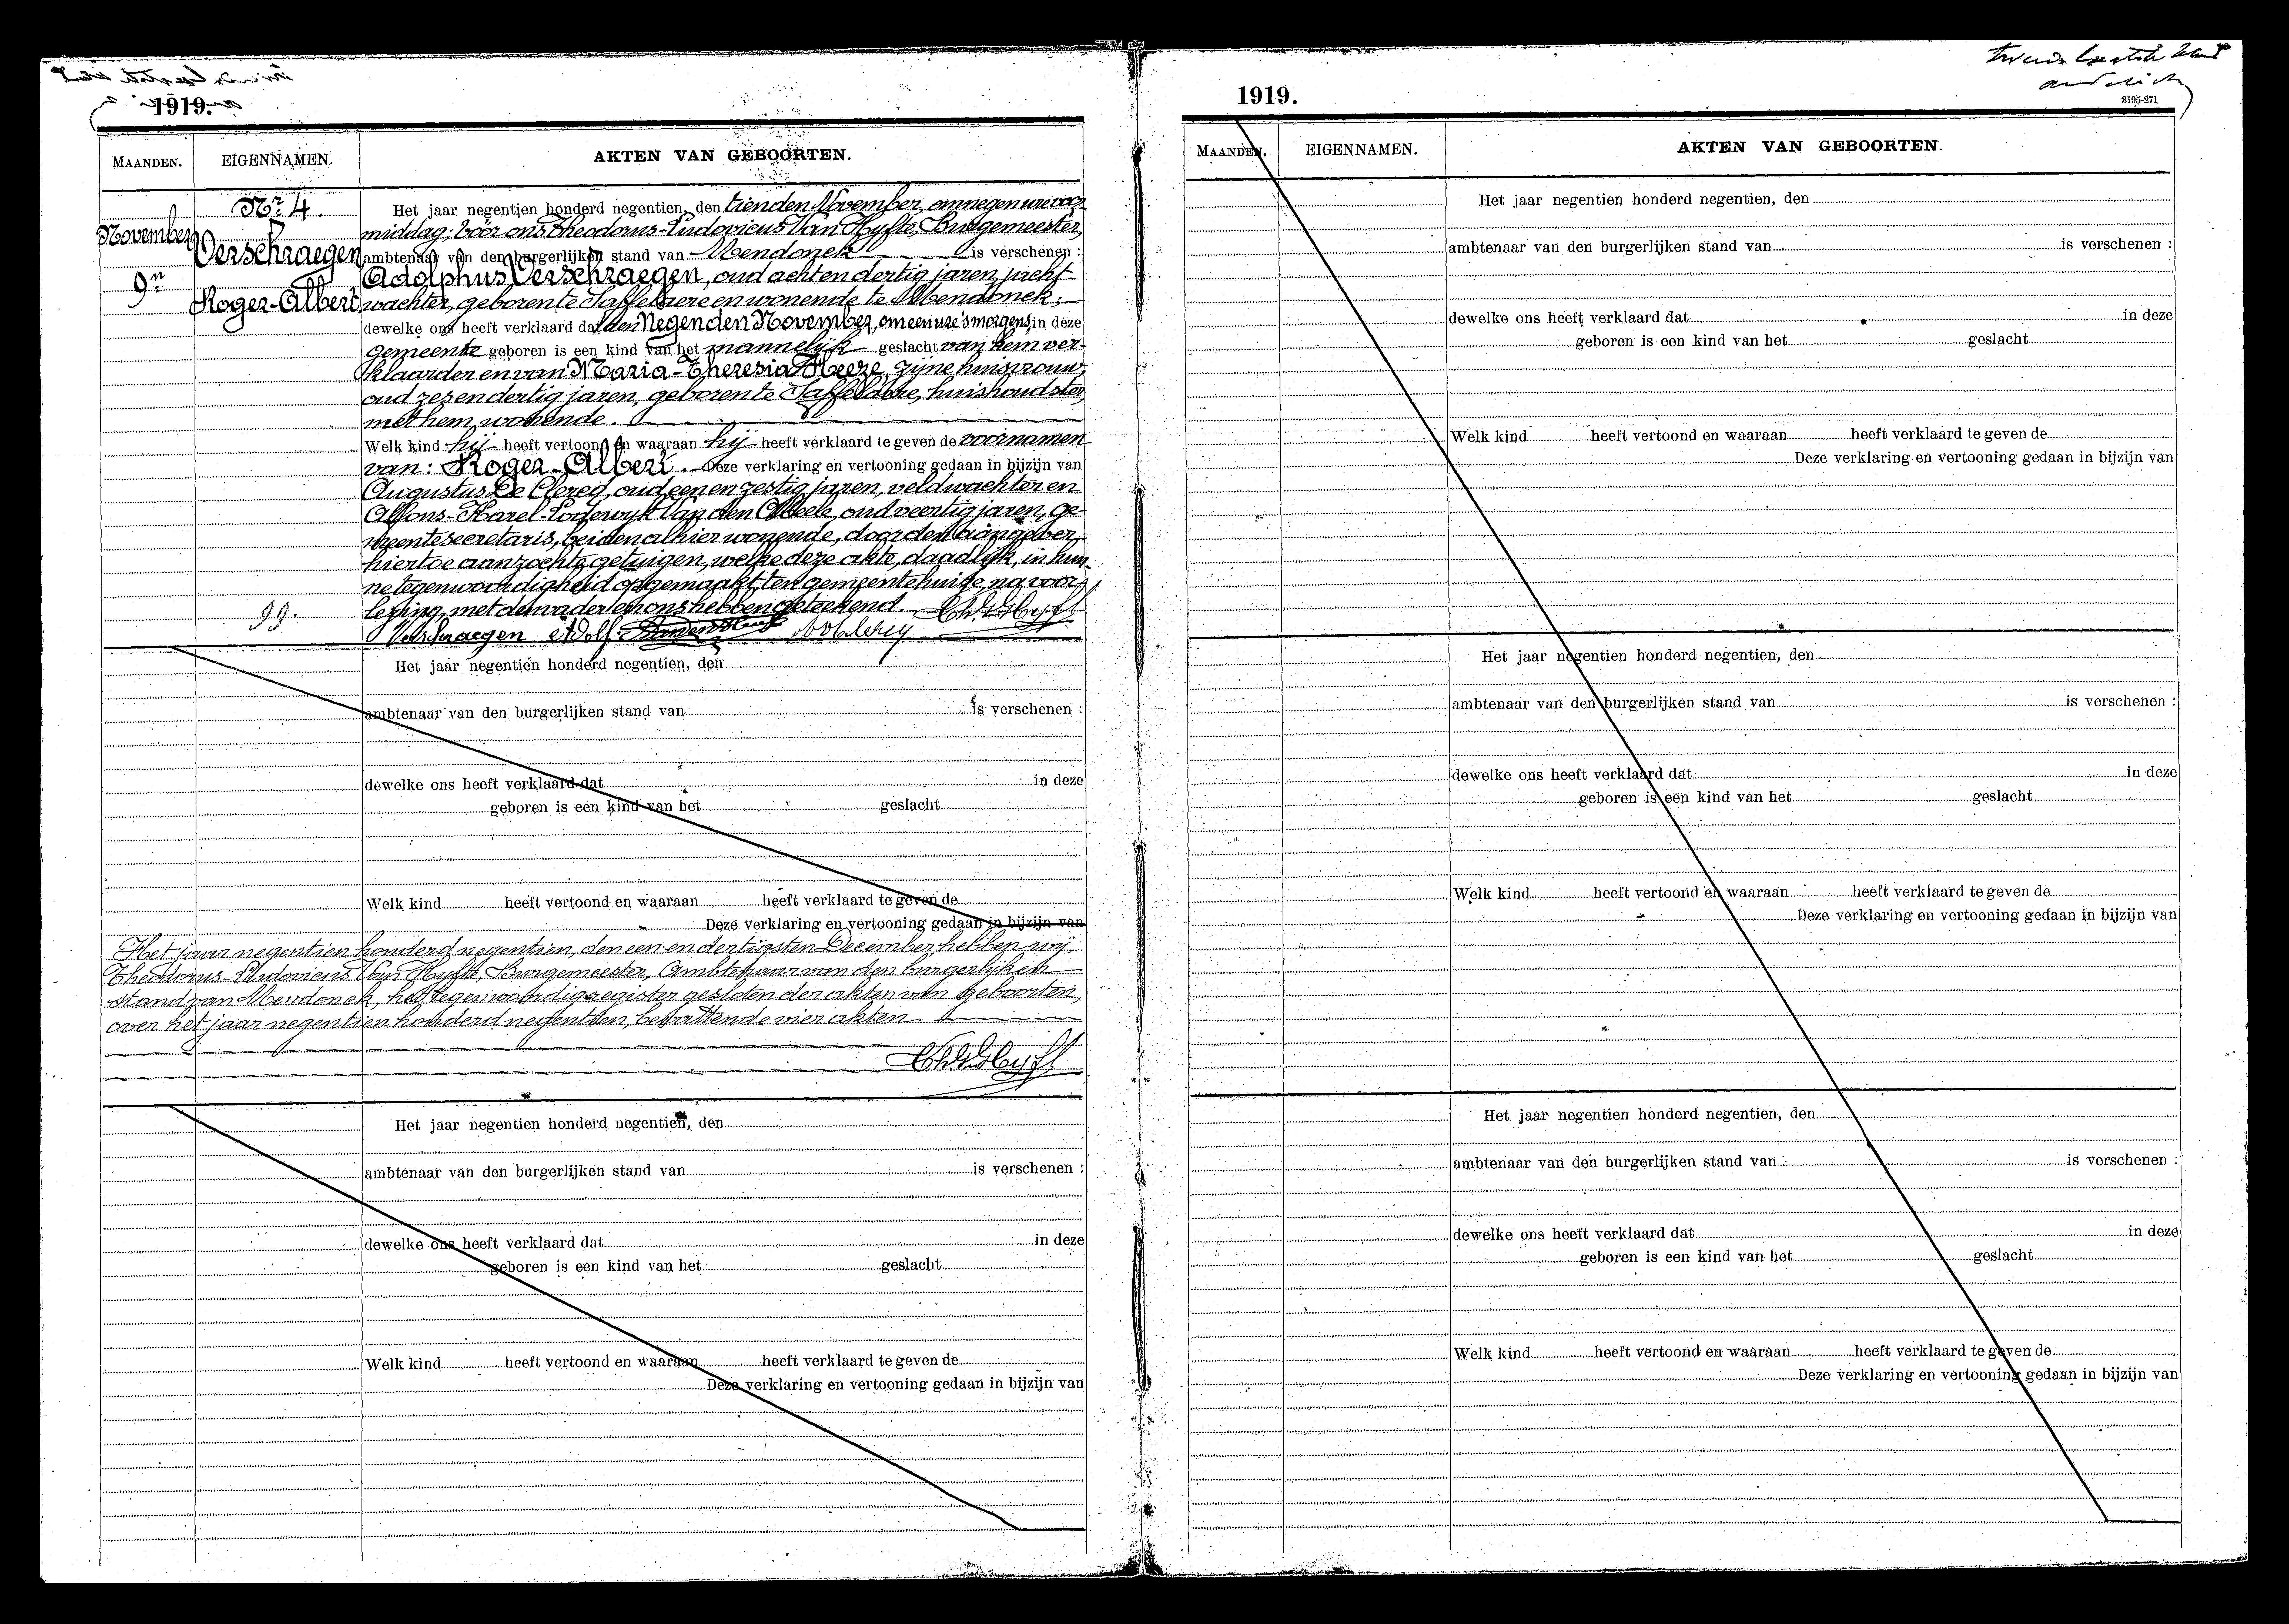 1919.
MAANDEN.
EIGENNAMEN.
AKTEN VAN GEBOORTEN.
Nr 4.
November
9n
Verschraegen
Roger-Albert
99.
Het jaar negentien honderd negentien, den tienden November, om negen ure voor
middag, vóór ons Theodorus-Ludovicus Van Hyfte, Burgemeester,
ambtenaar van den burgerlijken stand van Mendonck is verschenen :
Adolphus Verschraegen, oud acht en dertig jaren, jacht
wachter, geboren te Saffelaere en wonende te Mendonck;
dewelke ons heeft verklaard dat den Negenden November, om een ure 's morgens, in deze
gemeente geboren is een kind van het mannelijk geslacht van hem ver-
klaarder en van Maria-Theresia Heeze, zijne huisvrouw,
oud zes en dertig jaren, geboren te Saffelaere, huishoudster,
met hem wonende.
Welk kind hij heeft vertoond en waaraan hij heeft verklaard te geven de voornamen
van: Roger-Albert. Deze verklaring en vertooning gedaan in bijzijn van
Augustus De Clercq, oud een en zestig jaren, veldwachter en
Alfons-Karel-Lodewyk Van den Abeele, oud veertig jaren, ge-
meentesecretaris, beiden alhier wonende, door den aangever
hiertoe aanzochte getuigen, welke deze akte, daadlijk, in hun-
ne tegenwoordigheid opgemaakt, ten gemeentehuize, na voor-
lezing, met den vader en ons hebben geteekend.
Verschraegen Adolf
Het jaar negentien honderd negentien, den
ambtenaar van den burgerlijken stand van is verschenen :
dewelke ons heeft verklaard dat in deze
geboren is een kind van het geslacht
Welk kind heeft vertoond en waaraan heeft verklaard te geven de
Deze verklaring en vertooning gedaan in bijzijn van
Het jaar negentien honderd negentien, den een en dertigsten December, hebben wij,
Theodorus-Ludovicus Van Hyfte, Burgemeester, Ambtenaar van den burgerlijken
stand van Mendonck, het tegenwoordig register gesloten der akten van geboorten,
over het jaar negentien honderd negentien, bevattende vier akten
Het jaar negentien honderd negentien, den
ambtenaar van den burgerlijken stand van is verschenen :
dewelke ons heeft verklaard dat in deze
geboren is een kind van het geslacht
Welk kind heeft vertoond en waaraan heeft verklaard te geven de
Deze verklaring en vertooning gedaan in bijzijn van
1919.
3195-271
MAANDEN.
EIGENNAMEN.
AKTEN VAN GEBOORTEN.
Het jaar negentien honderd negentien, den
ambtenaar van den burgerlijken stand van is verschenen :
dewelke ons heeft verklaard dat in deze
geboren is een kind van het geslacht
Welk kind heeft vertoond en waaraan heeft verklaard te geven de
Deze verklaring en vertooning gedaan in bijzijn van
Het jaar negentien honderd negentien, den
ambtenaar van den burgerlijken stand van is verschenen :
dewelke ons heeft verklaard dat in deze
geboren is een kind van het geslacht
Welk kind heeft vertoond en waaraan heeft verklaard te geven de
Deze verklaring en vertooning gedaan in bijzijn van
Het jaar negentien honderd negentien, den
ambtenaar van den burgerlijken stand van is verschenen :
dewelke ons heeft verklaard dat in deze
geboren is een kind van het geslacht
Welk kind heeft vertoond en waaraan heeft verklaard te geven de
Deze verklaring en vertooning gedaan in bijzijn van